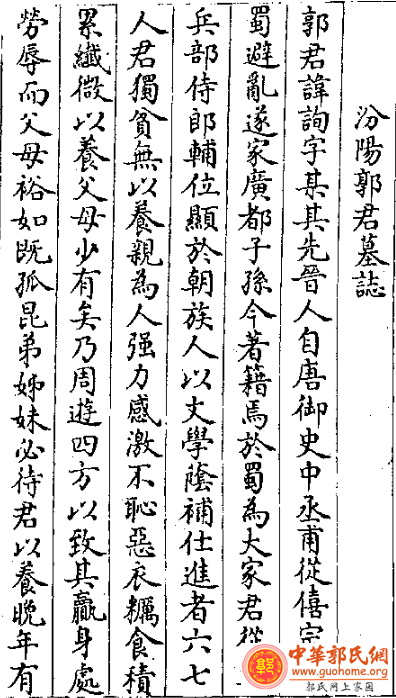 汾陽郭君墓誌
郭君諱詢字某其先晉人自唐御史中丞甫從僖宗
蜀避亂遂家廣都子孫今著籍焉於蜀為大家君從
兵部侍郎輔位顯於朝族人以文學蔭補仕進者六七
人君獨貧無以養親為人强力感激不恥惡衣糲食積
累纖微以養父母少有矣乃周遊四方以致其贏身處
勞辱而父母裕如既孤昆弟姊妹必待君以養晚年有
中華郭氏網
www.guohome.org
郭氏网上家園